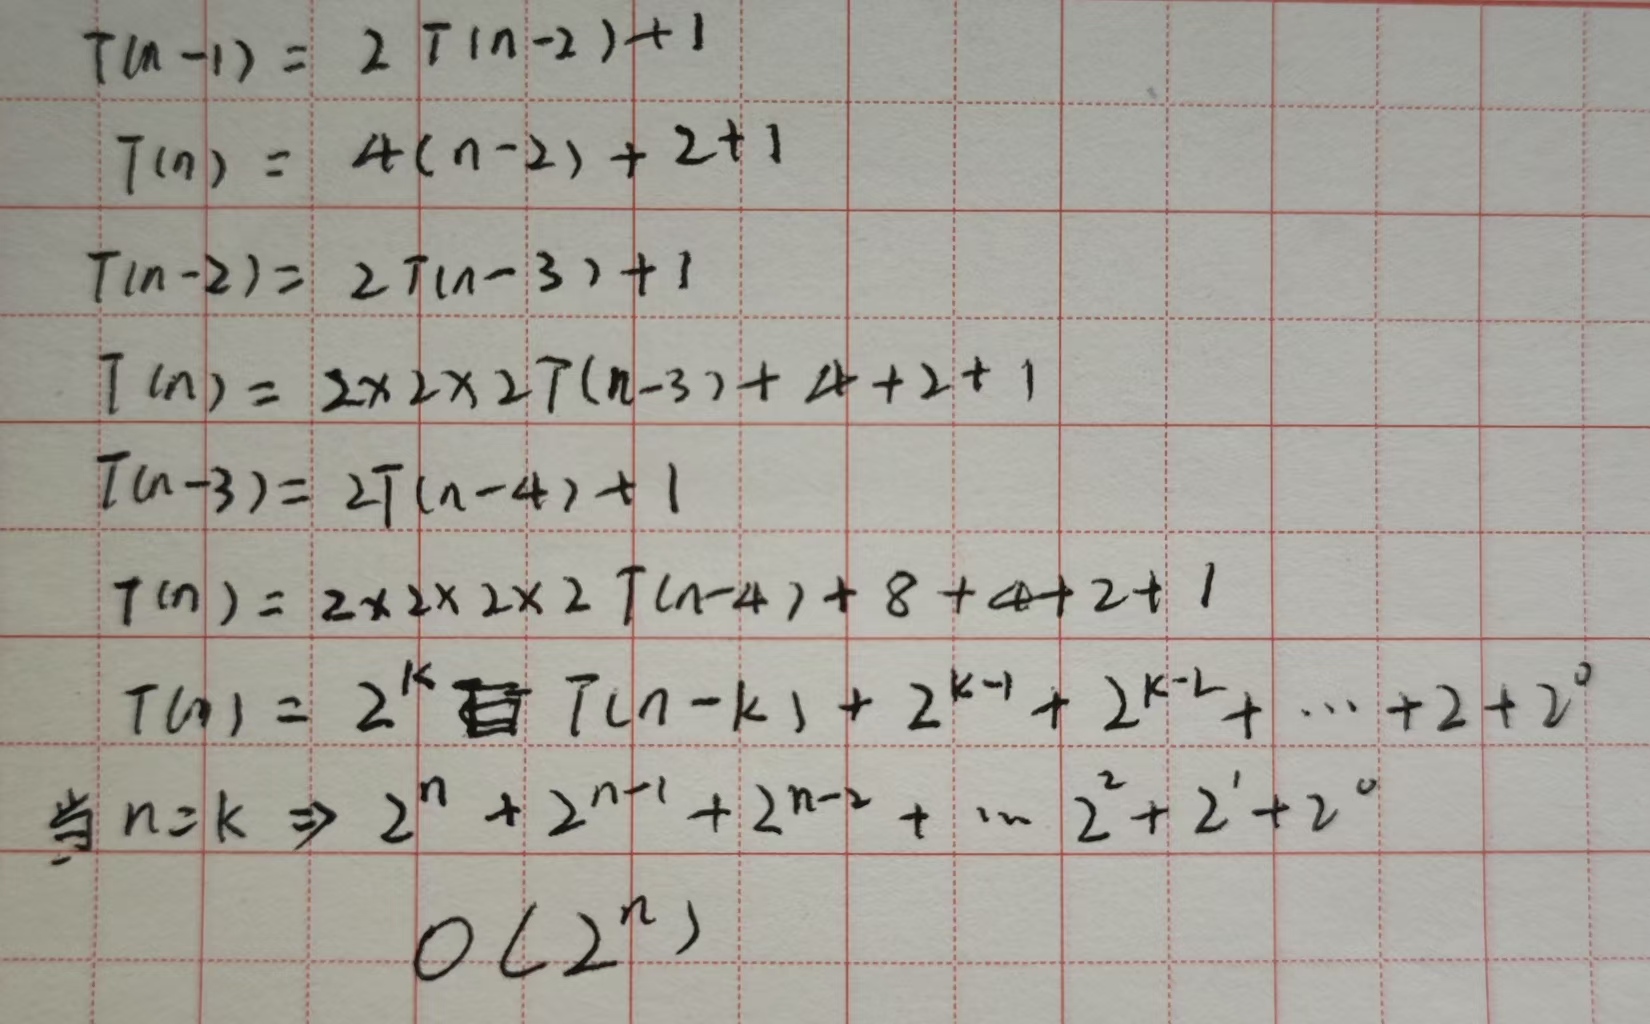 T(n-1) = 2 T(n-2)+1
T(n) = 4(n-2) + 2+1
T(n-2) = 2T(n-3)+1
T(n) = 2×2×2T(n-3)+4+2+1
T(n-3) = 2T(n-4)+1
T(n) = 2×2×2×2T(n-4)+8+4+2+1
T(n) = 2^k T(n-k) + 2^{k-1} + 2^{k-2} + ... +2+2^0
当 n=k ⇒ 2^n + 2^{n-1} + 2^{n-2} + ... 2^2+2^1+2^0
O(2^n)